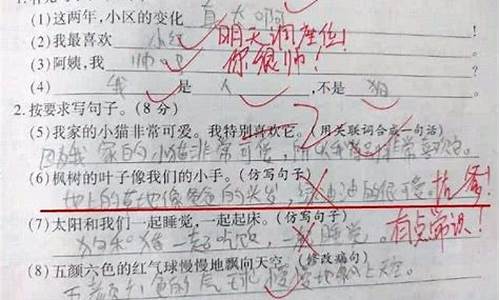 (1)这两年,小区的变化 真大啊
(2)我最喜欢 小红 明天调座位!
(3)阿姨,我 帅吧 你很帅!
(4) 我 是 人 ,不是 狗
2.按要求写句子。(8分)
(5)我家的小猫非常可爱。我特别喜欢它。(用关联词合成一句话)
因为我家的小猫非常可爱,所以我 非常喜欢它。
(6)枫树的叶子像我们的小手。(仿写句子)
地上的草地像爸爸的头发,绿油油的很可爱。 爹!
(7)太阳和我们一起睡觉,一起起床。(仿写句子)
狗和猪一起吃饭,一起睡觉。 有点常识!
(8)五颜六色的红气球慢慢地飘向天空。(修改病句)
五颜六色的气球慢慢地飘上天空。